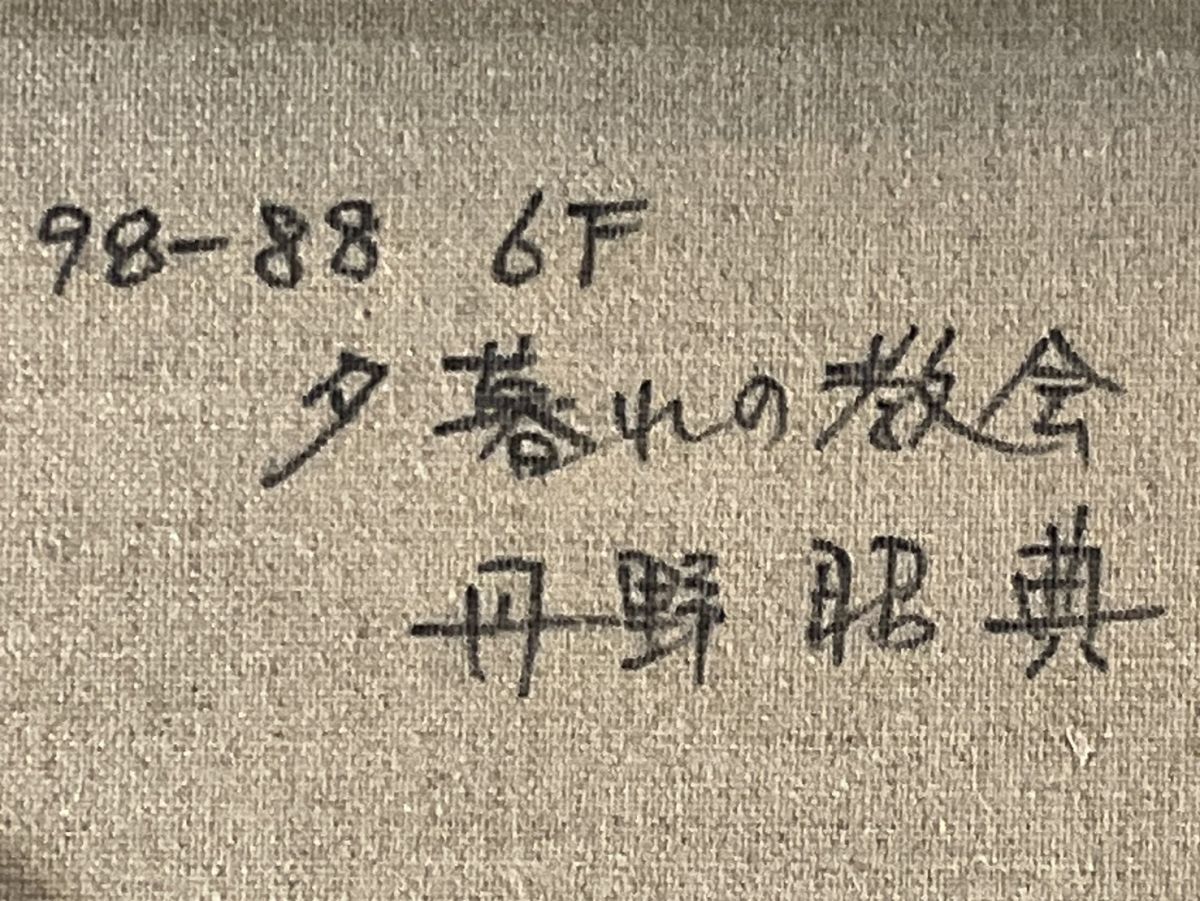 98-88 6F
夕暮れの教会
丹野昭典